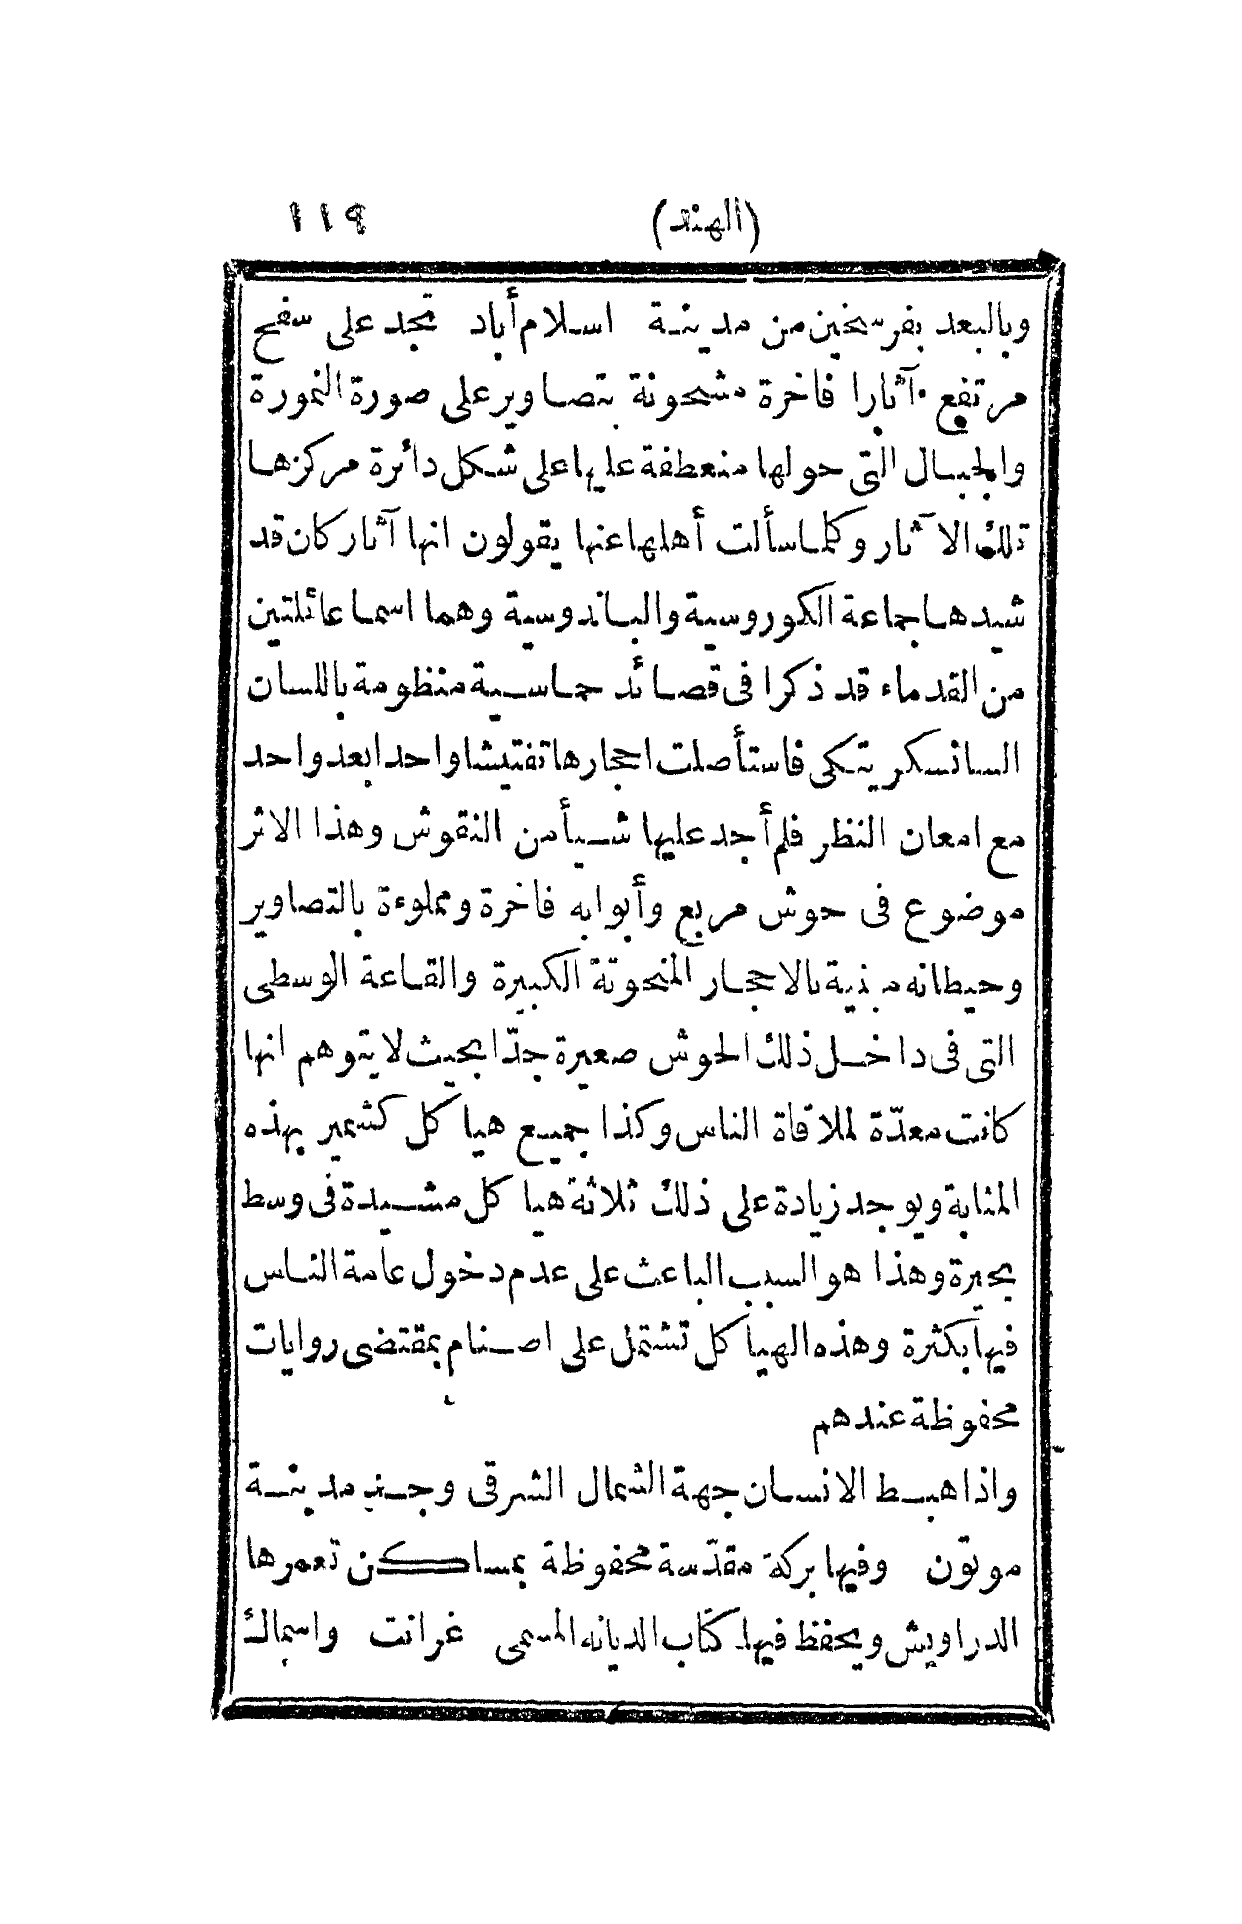 (الهند) ١١٩
وبالبعد بفرسخين من مدينة اسلام أباد تجد على سفح
مرتفع آثارا فاخرة مشحونة بتصاوير على صورة النمورة
والجبال التى حولها منعطفة عليها على شكل دائرة مركزها
تلك الا آثار وكلما سألت أهلها عنها يقولون انها آثار كان قد
شيدها جماعة الكوروسية والباندوسية وهما اسما عائلتين
من القدماء قد ذكرا فى قصائد حماسية منظومة باللسان
السانسكريتكى فاستأصلت احجارها تفتيشا واحدا بعد واحد
مع امعان النظر فلم أجد عليها شيأ من النقوش وهذا الاثر
موضوع فى حوش مربع وأبوابه فاخرة ومملوءة بالتصاوير
وحيطانه مبنية بالاحجار المنحوتة الكبيرة والقاعة الوسطى
التى فى داخل ذلك الحوش صعيرة جدّا بحيث لا يتوهم انها
كانت معدّة لملاقاة الناس وكذا جميع هياكل كشمير بهذه
المثابة ويوجد زيادة على ذلك ثلاثة هياكل مشيدة فى وسط
بحيرة وهذا هو السبب الباعث على عدم دخول عامة الناس
فيها بكثرة وهذه الهياكل تشتمل على اصنام بمقتضى روايات
محفوظة عندهم
واذا هبط الانسان جهة الشمال الشرقى وجد مدينة
موتون وفيها بركة مقدّسة محفوظة بمساكن تعمرها
الدراويش ويحفظ فيها كتاب الديانه المسمى غرانت واسمالك